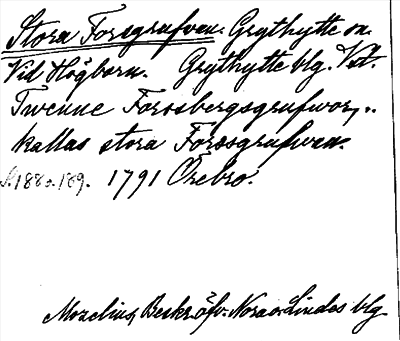 Stora Forsgrufvan. Grythytte sn.
Vid Högborn. Grythytte blg. Vstl.
Twenne Forssbergsgrufwor,..
kallas stora Forssgrufwan.
S. 188 o. 189. 1791 Örebro.
Mozelius, Beskr. öfv. Nora o. Lindes blg